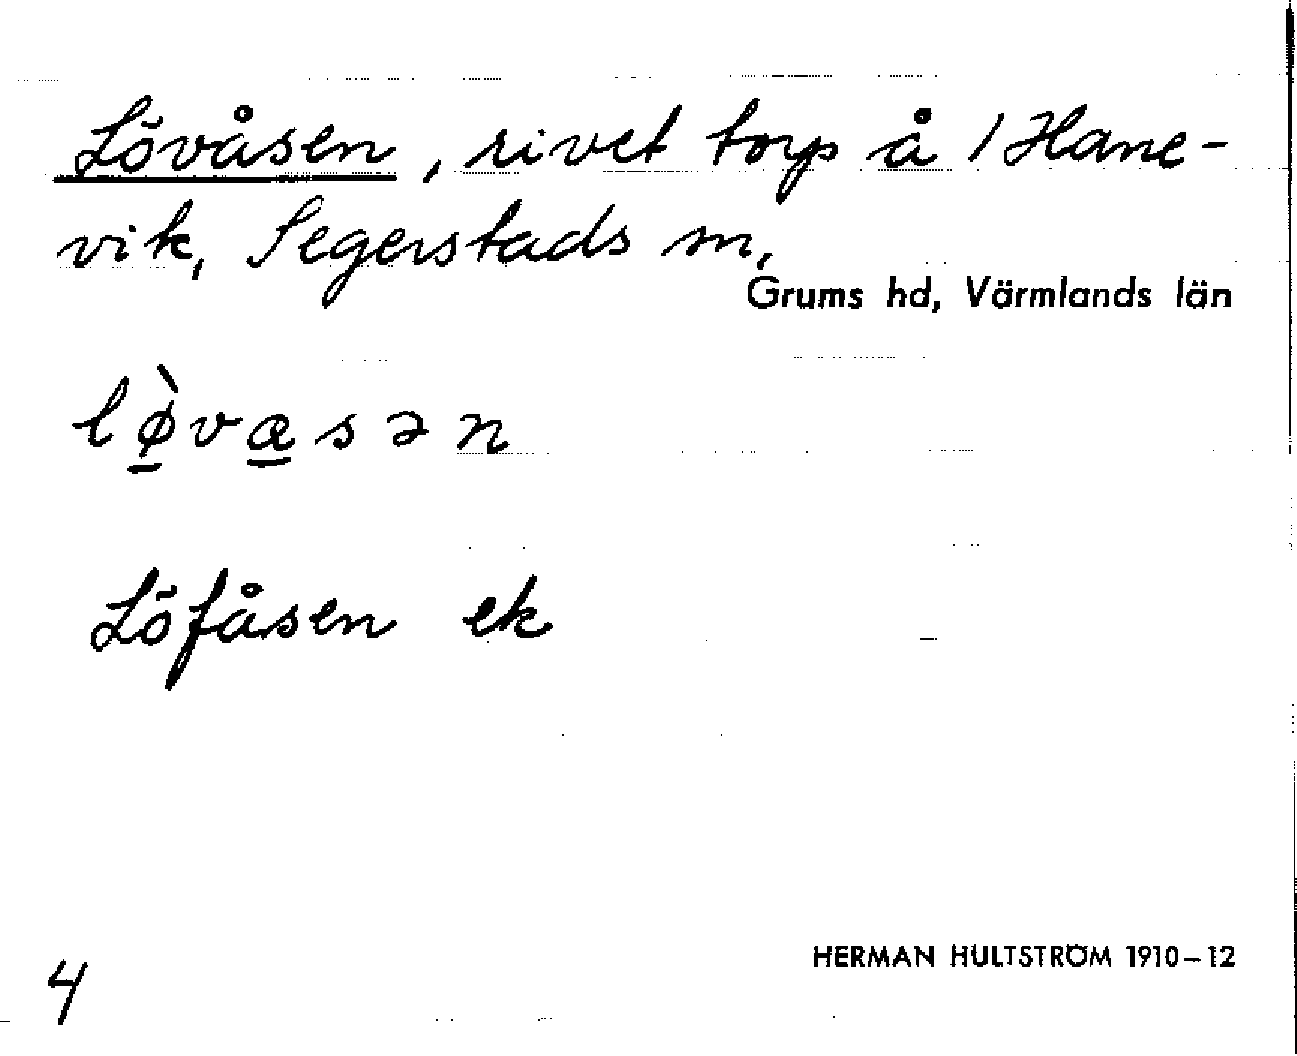 Lövåsen, rivet torp å 1 Hane-
vik, Segerstads sn,
Grums hd, Värmlands län
lø̠̀væ̠sən
Löfåsen ek
HERMAN HULTSTRÖM 1910–12
4